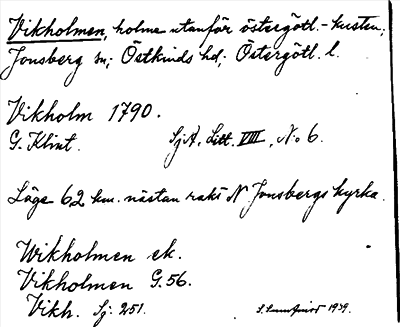 Vikholmen, holme utanför östergötl.-kusten,
Jonsberg sn; Östkinds hd; Östergötl. l.
Vikholm 1790.
G. Klint. SjA, Litt. VIII, No 6.
Läge 6,2 km. nästan rakt N Jonsbergs kyrka.
Wikholmen ek.
Vikholmen G. 56.
Vikh. Sj. 251. 1939.